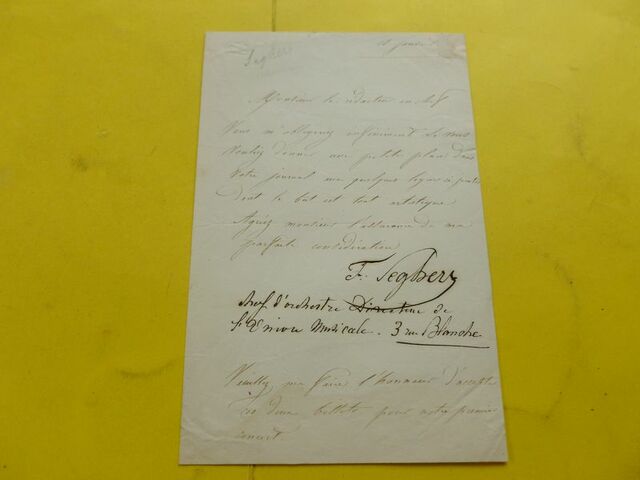 Seghers
18 janvier
Monsieur le rédacteur en chef
Vous m'obligerez infiniment si vous
voulez donner une petite place dans
votre journal aux quelques lignes ci jointes
dont le but est tout artistique
Agréez monsieur l'assurance de ma
parfaite considération
F. Seghers
chef d'orchestre Directeur de
l'Œuvre Musicale. 3 rue Blanche
Veuillez me faire l'honneur d'accepter
ces deux billets pour notre premier
concert.